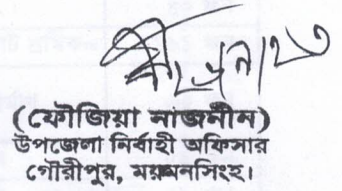 (ফৌজিয়া নাজনীন)
উপজেলা নির্বাহী অফিসার
গৌরীপুর, ময়মনসিংহ।